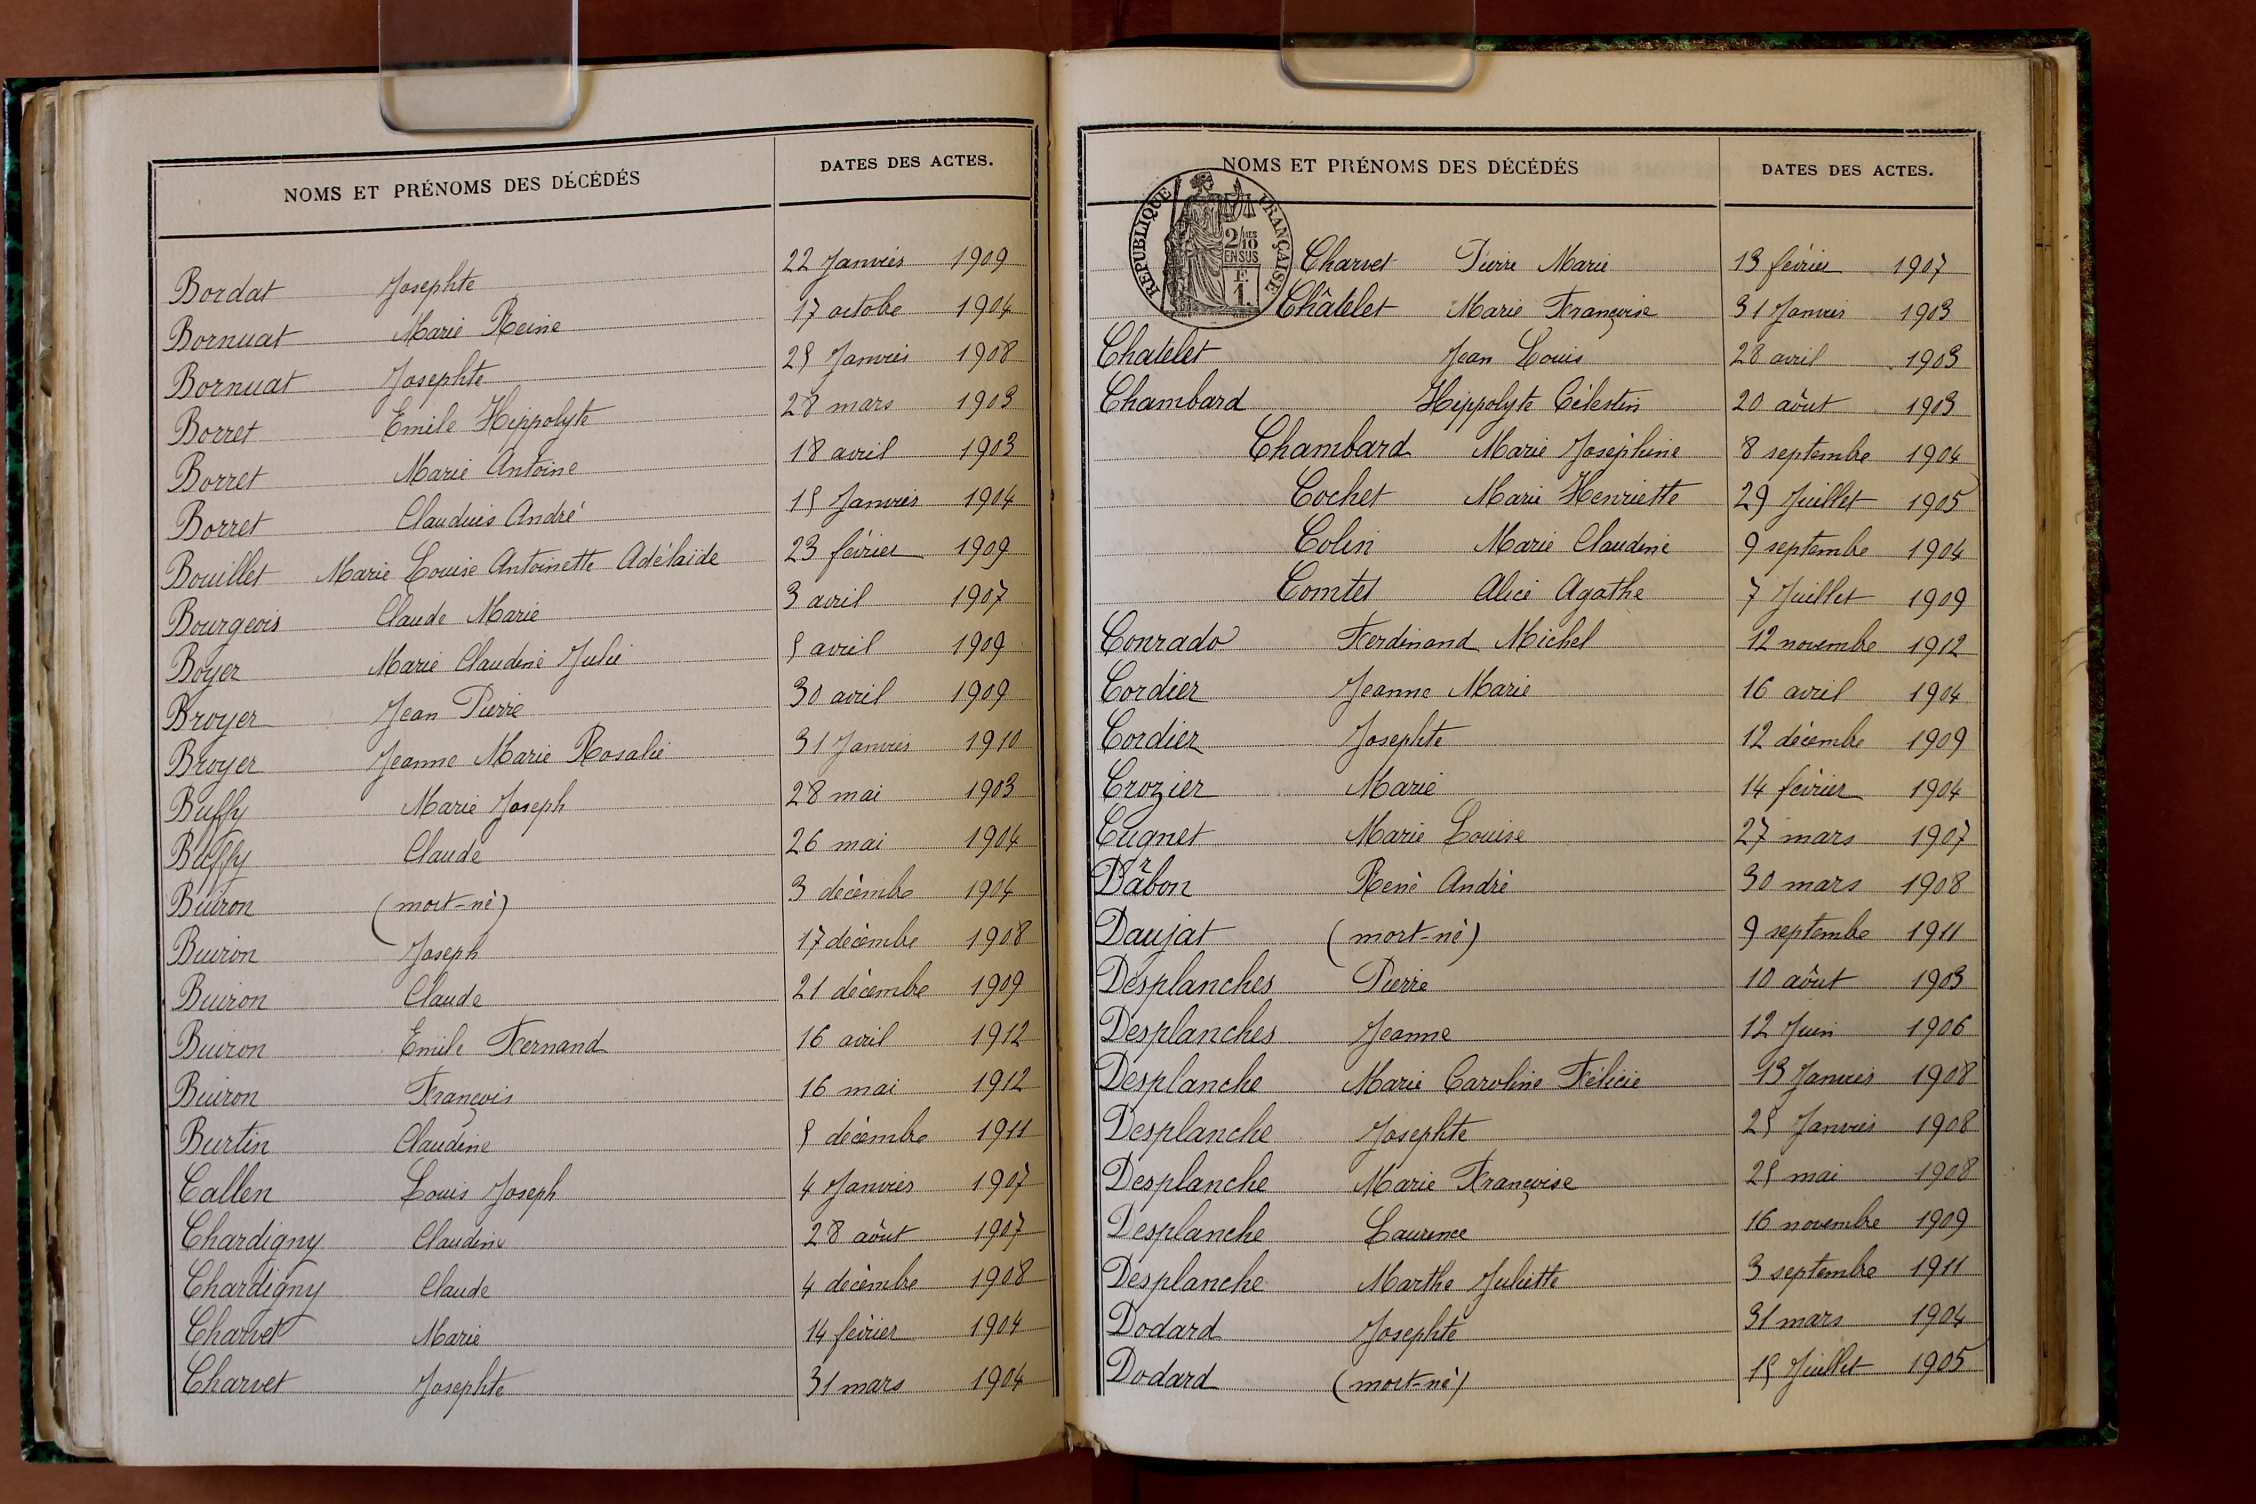 NOMS ET PRÉNOMS DES DÉCÉDÉS DATES DES ACTES.
Bordat Josephte 22 Janvier 1909
Bornuat Marie Reine 17 octobre 1904
Bornuat Josephte 25 Janvier 1908
Borret Emile Hippolyte 28 mars 1903
Borret Marie Antoine 18 avril 1903
Borret Claudius André 15 Janvier 1904
Bouillet Marie Louise Antoinette Adélaïde 23 février 1909
Bourgeois Claude Marie 3 avril 1907
Boyer Marie Claudine Julie 5 avril 1909
Broyer Jean Pierre 30 avril 1909
Broyer Jeanne Marie Rosalie 31 Janvier 1910
Buffy Marie Joseph 28 mai 1903
Buffy Claude 26 mai 1904
Buiron (mort-né) 3 décembre 1904
Buiron Joseph 17 décembre 1908
Buiron Claude 21 décembre 1909
Buiron Emile Fernand 16 avril 1912
Buiron François 16 mai 1912
Burtin Claudine 5 décembre 1911
Callen Louis Joseph 4 Janvier 1907
Chardigny Claudine 28 aôut 1907
Chardigny Claude 4 décembre 1908
Charvet Marie 14 février 1904
Charvet Josephte 31 mars 1904
NOMS ET PRÉNOMS DES DÉCÉDÉS DATES DES ACTES.
RÉPUBLIQUE FRANÇAISE
2/10 MES
EN SUS
F
1.
Charvet Pierre Marie 13 février 1907
Châtelet Marie Françoise 31 Janvier 1903
Chatelet Jean Louis 28 avril 1903
Chambard Hippolyte Célestin 20 aôut 1903
Chambard Marie Joséphine 8 septembre 1904
Cochet Marie Henriette 29 Juillet 1905
Colin Marie Claudine 9 septembre 1904
Comtet Alice Agathe 7 Juillet 1909
Conrado Ferdinand Michel 12 novembre 1912
Cordier Jeanne Marie 16 avril 1904
Cordier Josephte 12 décembre 1909
Crozier Marie 14 février 1904
Cugnet Marie Louise 27 mars 1907
Dârbon René André 30 mars 1908
Daujat (mort-né) 9 septembre 1911
Desplanches Pierre 10 aôut 1903
Desplanches Jeanne 12 Juin 1906
Desplanche Marie Caroline Félicie 13 Janvier 1908
Desplanche Josephte 25 Janvier 1908
Desplanche Marie Françoise 25 mai 1908
Desplanche Laurence 16 novembre 1909
Desplanche Marthe Juliette 3 septembre 1911
Dodard Josephte 31 mars 1904
Dodard (mort-né) 15 Juillet 1905